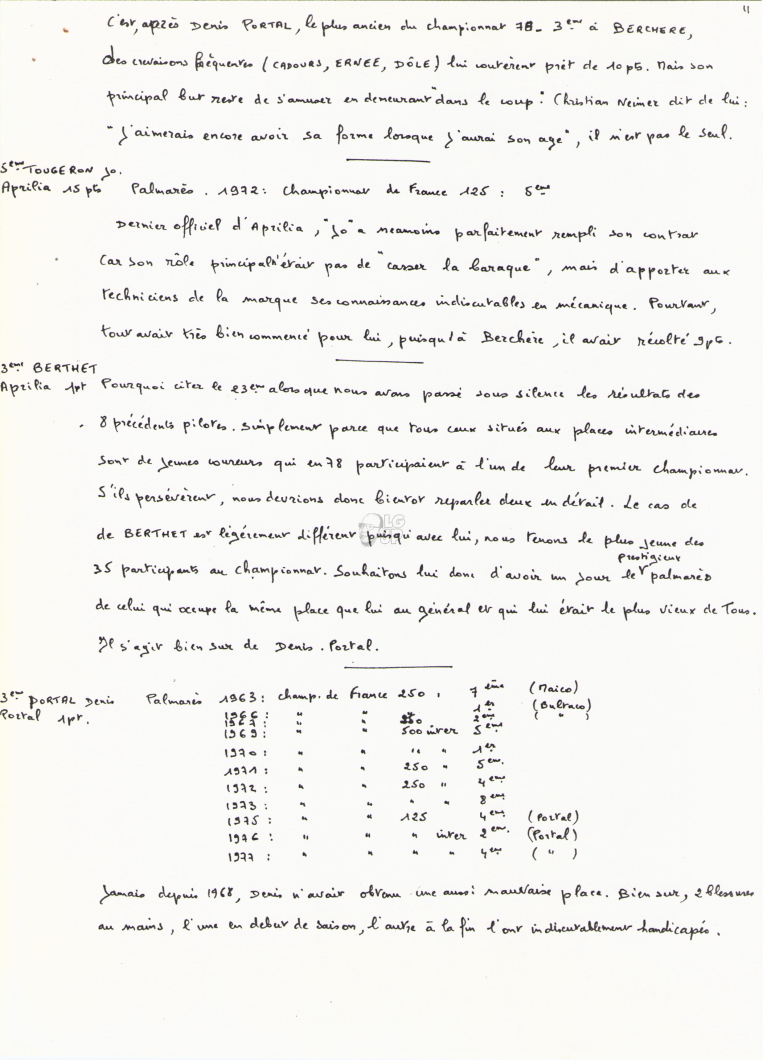 11
C'est, après Denis PORTAL, le plus ancien du championnat 78. 3ème à BERCHERE,
des crevaisons fréquentes (CADOURS, ERNEE, DÔLE) lui coutèrent prêt de 10 pts. Mais son
principal but reste de s'amuser en demeurant "dans le coup". Christian Neimer dit de lui:
"J'aimerais encore avoir sa forme lorsque j'aurai son age", il n'est pas le seul.
5ème TOUGERON Jo.
Aprilia 15 pts Palmarès . 1972: Championnat de France 125 : 5ème
Dernier officiel d'Aprilia, "Jo" a neamoins parfaitement rempli son contrat
Car son rôle principal n'était pas de "casser la baraque", mais d'apporter aux
techniciens de la marque ses connaissances indiscutables en mécanique. Pourtant,
tout avait très bien commencé pour lui, puisqu'à Berchère, il avait récolté 9 pts.
3ème BERTHET
Aprilia 1pt Pourquoi citer le 23ème alors que nous avons passé sous silence les résultats des
8 précédents pilotes. Simplement parce que tous ceux situés aux places intermédiaires
sont de jeunes coureurs qui en 78 participaient à l'un de leur premier championnat.
S'ils persévèrent, nous devrions donc bientot reparler deux en détail. Le cas de
de BERTHET est légérement différent puisqu'avec lui, nous tenons le plus jeune des
prestigieux
35 participants au Championnat. Souhaitons lui donc d'avoir un jour le palmarès
de celui qui occupe la même place que lui au général et qui lui était le plus vieux de Tous.
Il s'agit bien sur de Denis . Portal.
3ème PORTAL Denis Palmarès 1963: champ. de France 250 : 7ème (Maico)
Portal 1pt. 1966: " " " 1er (Bultaco)
1967: " " 250 2ème ( " )
1969: " " 500 inter 5ème
1970: " " " " 1er
1971: " " 250 " 5ème
1972: " " 250 " 4ème
1973: " " " " 8ème
1975: " " 125 4ème (Portal)
1976: " " " inter 2ème. (Portal)
1977: " " " " 4ème ( " )
Jamais depuis 1968, Denis n'avait obtenu une aussi mauvaise place. Bien sur, 2 blessures
au mains, l'une en debut de saison, l'autre à la fin l'ont indiscutablement handicapé.